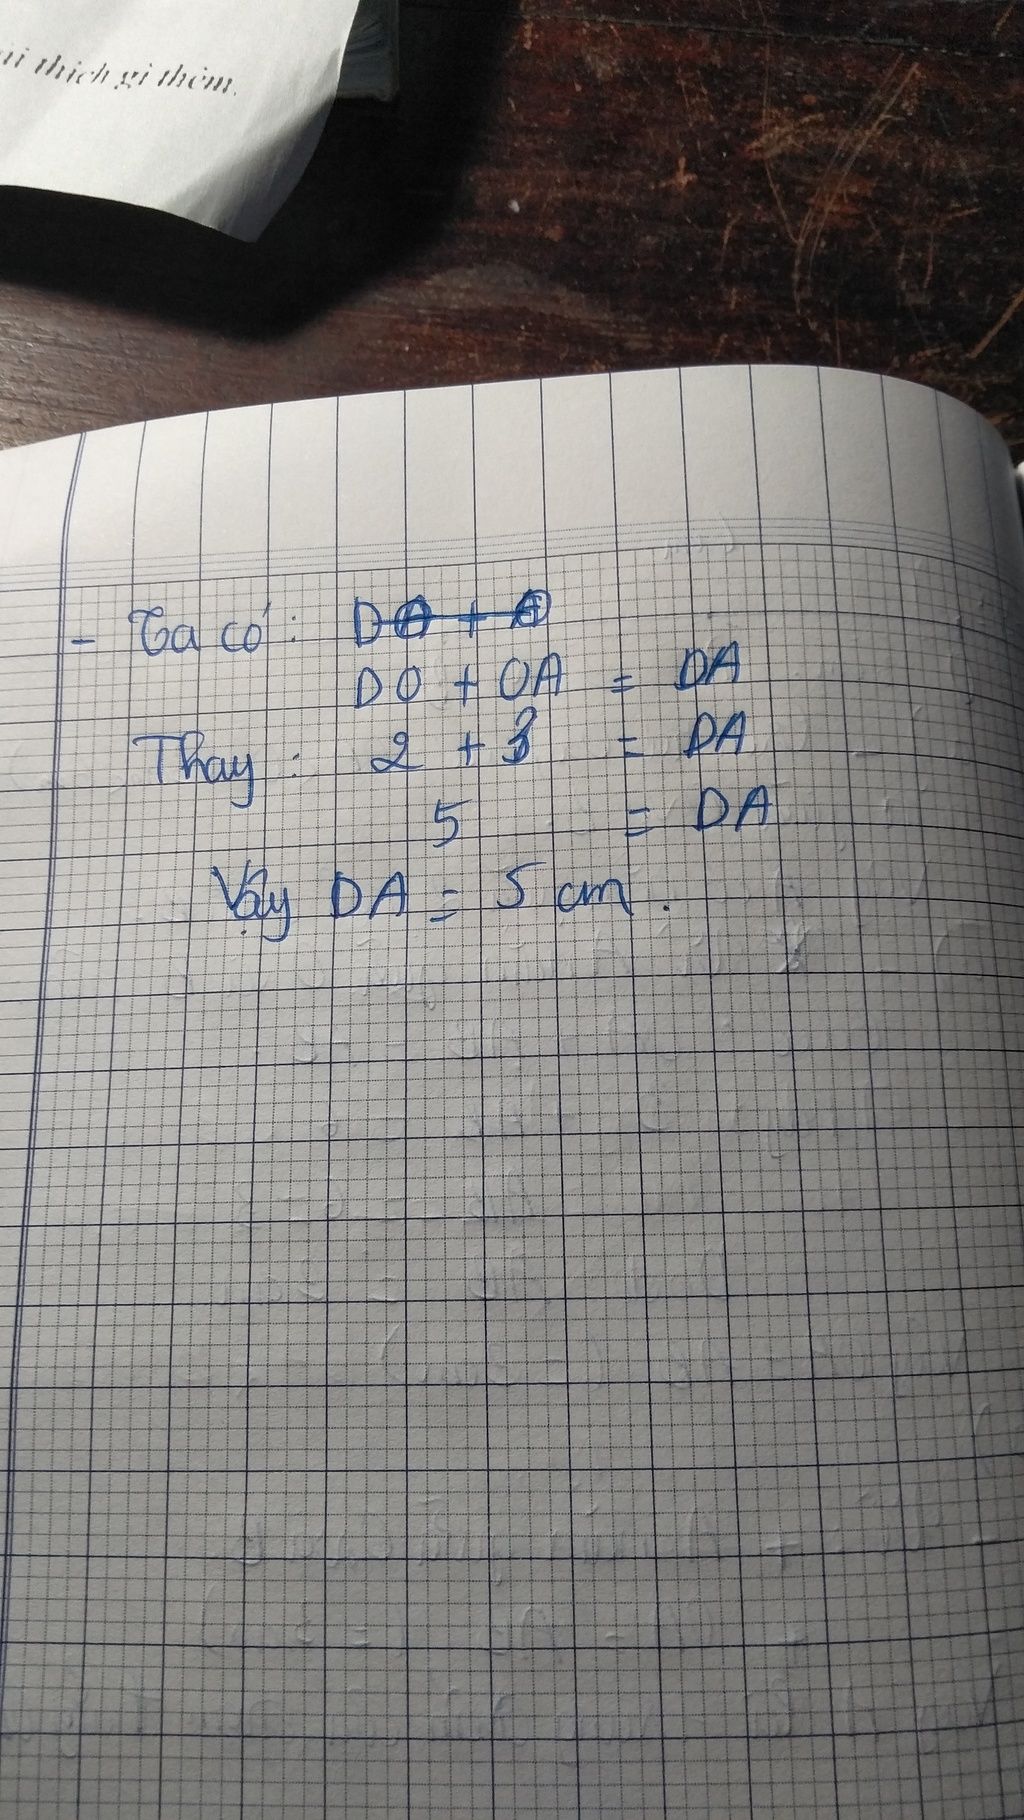 thích gì thêm.
- Ta có: DO + A
DO + OA = DA
Thay: 2 + 3 = DA
5 = DA
Vậy DA = 5 cm.